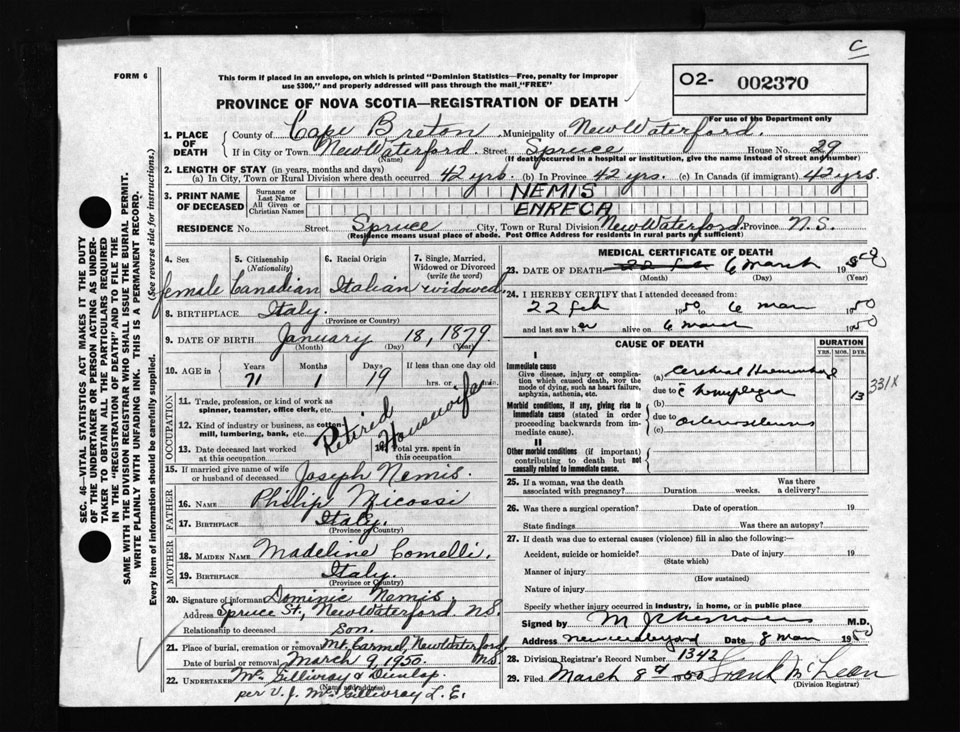 C
FORM 6
This form if placed in an envelope, on which is printed "Dominion Statistics—Free, penalty for improper
use $300," and properly addressed will pass through the mail "FREE"
O2- 002370
For use of the Department only
PROVINCE OF NOVA SCOTIA—REGISTRATION OF DEATH
SEC. 46—VITAL STATISTICS ACT MAKES IT THE DUTY
OF THE UNDERTAKER OR PERSON ACTING AS UNDER-
TAKER TO OBTAIN ALL THE PARTICULARS REQUIRED
IN THE "REGISTRATION OF DEATH" AND TO FILE THE
SAME WITH THE DIVISION REGISTRAR WHO SHALL ISSUE THE BURIAL PERMIT.
WRITE PLAINLY WITH UNFADING INK. THIS IS A PERMANENT RECORD.
Every item of information should be carefully supplied. (See reverse side for instructions.)
1. PLACE OF DEATH
County of Cape Breton Municipality of New Waterford.
If in City or Town New Waterford. Street Spruce House No. 29
(Name) (If death occurred in a hospital or institution, give the name instead of street and number)
2. LENGTH OF STAY (in years, months and days)
(a) In City, Town or Rural Division where death occurred 42 yrs. (b) In Province 42 yrs. (c) In Canada (if immigrant) 42 yrs.
3. PRINT NAME OF DECEASED
Surname or Last Name NEMIS
All Given or Christian Names ENRECA
RESIDENCE No. Street Spruce City, Town or Rural Division New Waterford Province N.S.
(Residence means usual place of abode. Post Office Address for residents in rural parts not sufficient)
4. Sex 5. Citizenship (Nationality) 6. Racial Origin 7. Single, Married, Widowed or Divorced (write the word)
female Canadian Italian widowed
8. BIRTHPLACE Italy.
(Province or Country)
9. DATE OF BIRTH January 18, 1879
(Month) (Day) (Year)
10. AGE in Years Months Days If less than one day old
71 1 19 hrs. or min.
OCCUPATION
11. Trade, profession, or kind of work as
spinner, teamster, office clerk, etc.
12. Kind of industry or business, as cotton
mill, lumbering, bank, etc.
Retired Housewife
13. Date deceased last worked
at this occupation
14. Total yrs. spent in
this occupation
15. If married give name of wife
or husband of deceased Joseph Nemis.
FATHER
16. NAME Philip Micossi
17. BIRTHPLACE Italy.
(Province or Country)
MOTHER
18. MAIDEN NAME Madeline Comelli.
19. BIRTHPLACE Italy.
(Province or Country)
20. Signature of informant Dominic Nemis.
Address Spruce St., New Waterford N.S.
Relationship to deceased Son.
21. Place of burial, cremation or removal Mt. Carmel, New Waterford, N.S.
Date of burial or removal March 9, 1950.
22. UNDERTAKER McGillivray & Dunlop
(Name and address)
per V. J. McGillivray L. E.
MEDICAL CERTIFICATE OF DEATH
23. DATE OF DEATH 22 feb 6 March 1950
(Month) (Day)
24. I HEREBY CERTIFY that I attended deceased from:
22 feb 1950 to 6 mar 1950
and last saw her alive on 6 march 1950
CAUSE OF DEATH DURATION
YRS. MOS. DYS.
I
Immediate cause
Give disease, injury or complica-
tion which caused death, NOT the
mode of dying, such as heart failure,
asphyxia, asthenia, etc.
(a) Cerebral Haemorrhage
due to c̄ hemiplegia 13
331X
Morbid conditions, if any, giving rise to
immediate cause (stated in order
proceeding backwards from im-
mediate cause).
(b)
due to arteriosclerosis
(c)
II
Other morbid conditions (if important)
contributing to death but not
causally related to immediate cause.
25. If a woman, was the death
associated with pregnancy? Duration weeks. Was there
a delivery?
26. Was there a surgical operation? Date of operation 19
State findings Was there an autopsy?
27. If death was due to external causes (violence) fill in also the following:—
Accident, suicide or homicide? Date of injury 19
(State which)
Manner of injury
(How sustained)
Nature of injury
Specify whether injury occurred in industry, in home, or in public place
Signed by M.D.
Address Date 8 Mar 1950
28. Division Registrar's Record Number 1342
29. Filed March 8th 1950 Frank McLean
(Division Registrar)